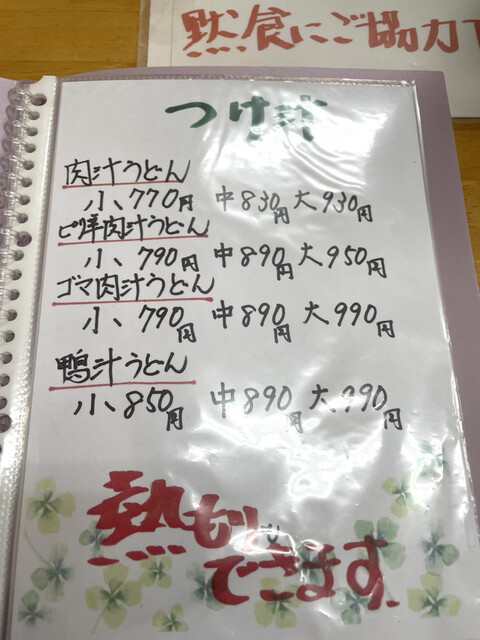 黙食にご協力
つけ汁
肉汁うどん
小、770円 中830円 大930円
ピリ辛肉汁うどん
小、790円 中890円 大950円
ゴマ肉汁うどん
小、790円 中890円 大990円
鴨汁うどん
小、850円 中890円 大990円
熱もり
できます